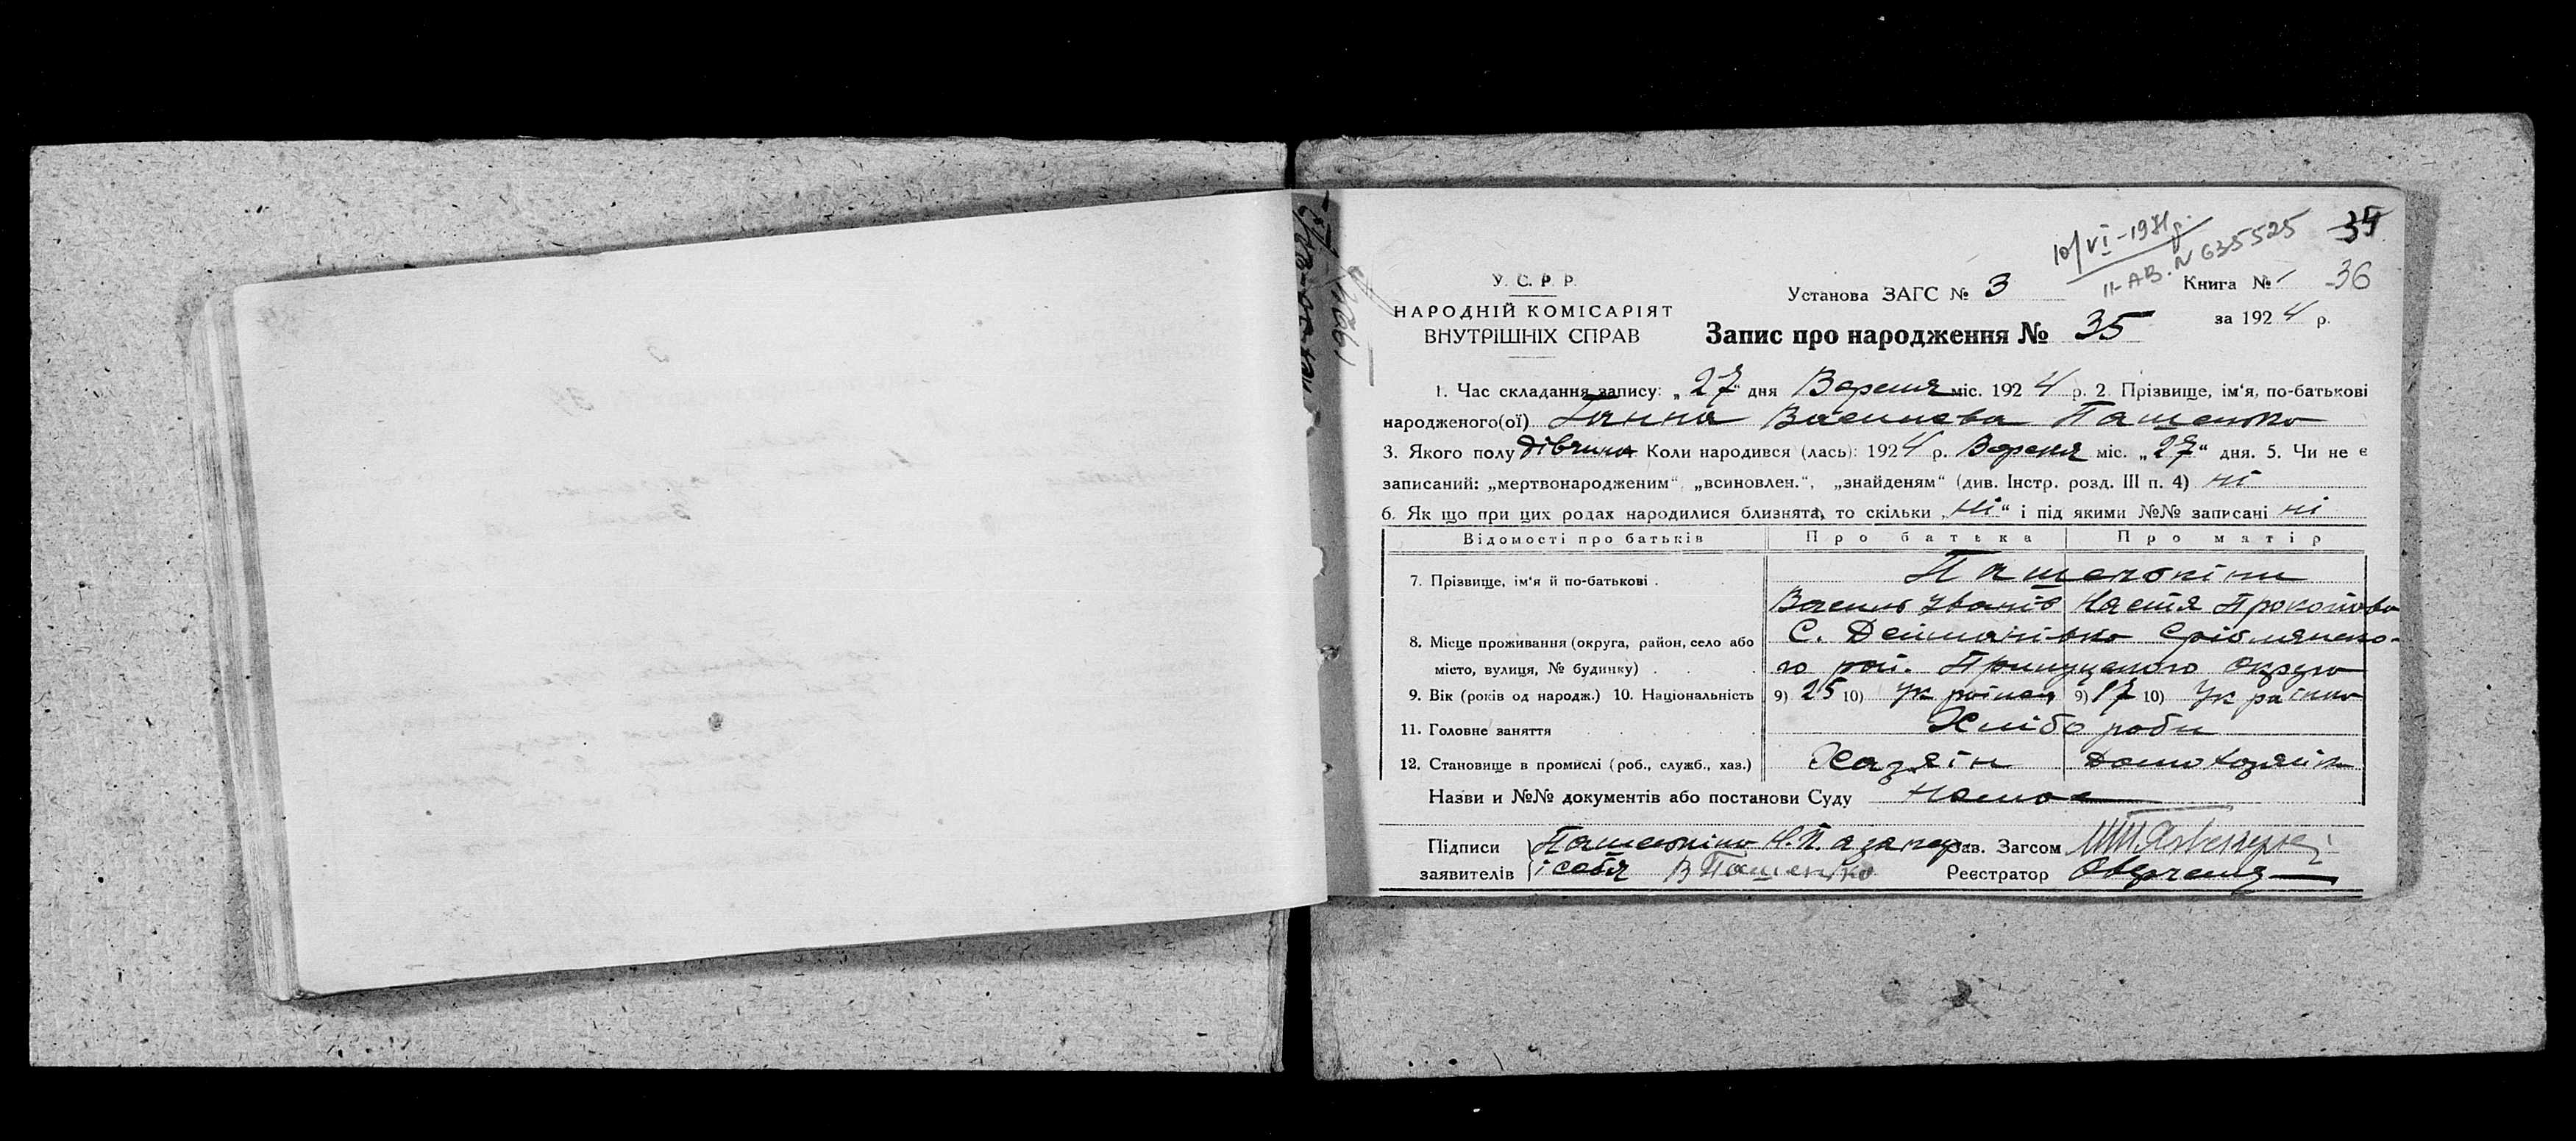 10/VI-1981р.
II-АВ. N 635525
У. С. Р. Р.
НАРОДНІЙ КОМІСАРІЯТ
ВНУТРІШНІХ СПРАВ
Установа ЗАГС № 3
Книга № 36
за 1924 р.
Запис про народження № 35
1. Час складання запису: „27“ дня Вересня міс. 1924 р. 2. Прізвище, ім'я, по-батькові
народженого(ої) Ганна Василева Пашенко
3. Якого полу дівчина Коли народився (лась): 1924 р. Вересня міс. „27“ дня. 5. Чи не є
записаний: „мертвонародженим“ „всиновлен.“, „знайденям“ (див. Інстр. розд. III п. 4) ні
6. Як що при цих родах народилися близнята, то скільки „ні“ і під якими №№ записані ні
Відомості про батьків Про батька Про матір
7. Прізвище, ім'я й по-батькові . Пашенкіни
Василь Іванів Настя Прокопова
8. Місце проживання (округа, район, село або С. Дейманівка Срібнянсько-
місто, вулиця, № будинку) . го рай. Прилуцького округа
9. Вік (років од народж.) 10. Національність 9) 25 10) Українец 9) 17 10) Українка
11. Головне заняття Хлібороби
12. Становище в промислі (роб., служб., хаз.) Хазяін Домохазяйка
Назви и №№ документів або постанови Суду Немає
Підписи Пашенкіна Н. П. а за неі Зав. Загсом
заявителів і себя В Пашенко Реєстратор